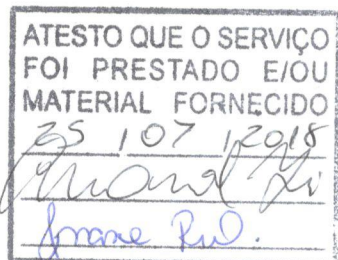 ATESTO QUE O SERVIÇO
FOI PRESTADO E/OU
MATERIAL FORNECIDO
25 / 07 / 2018